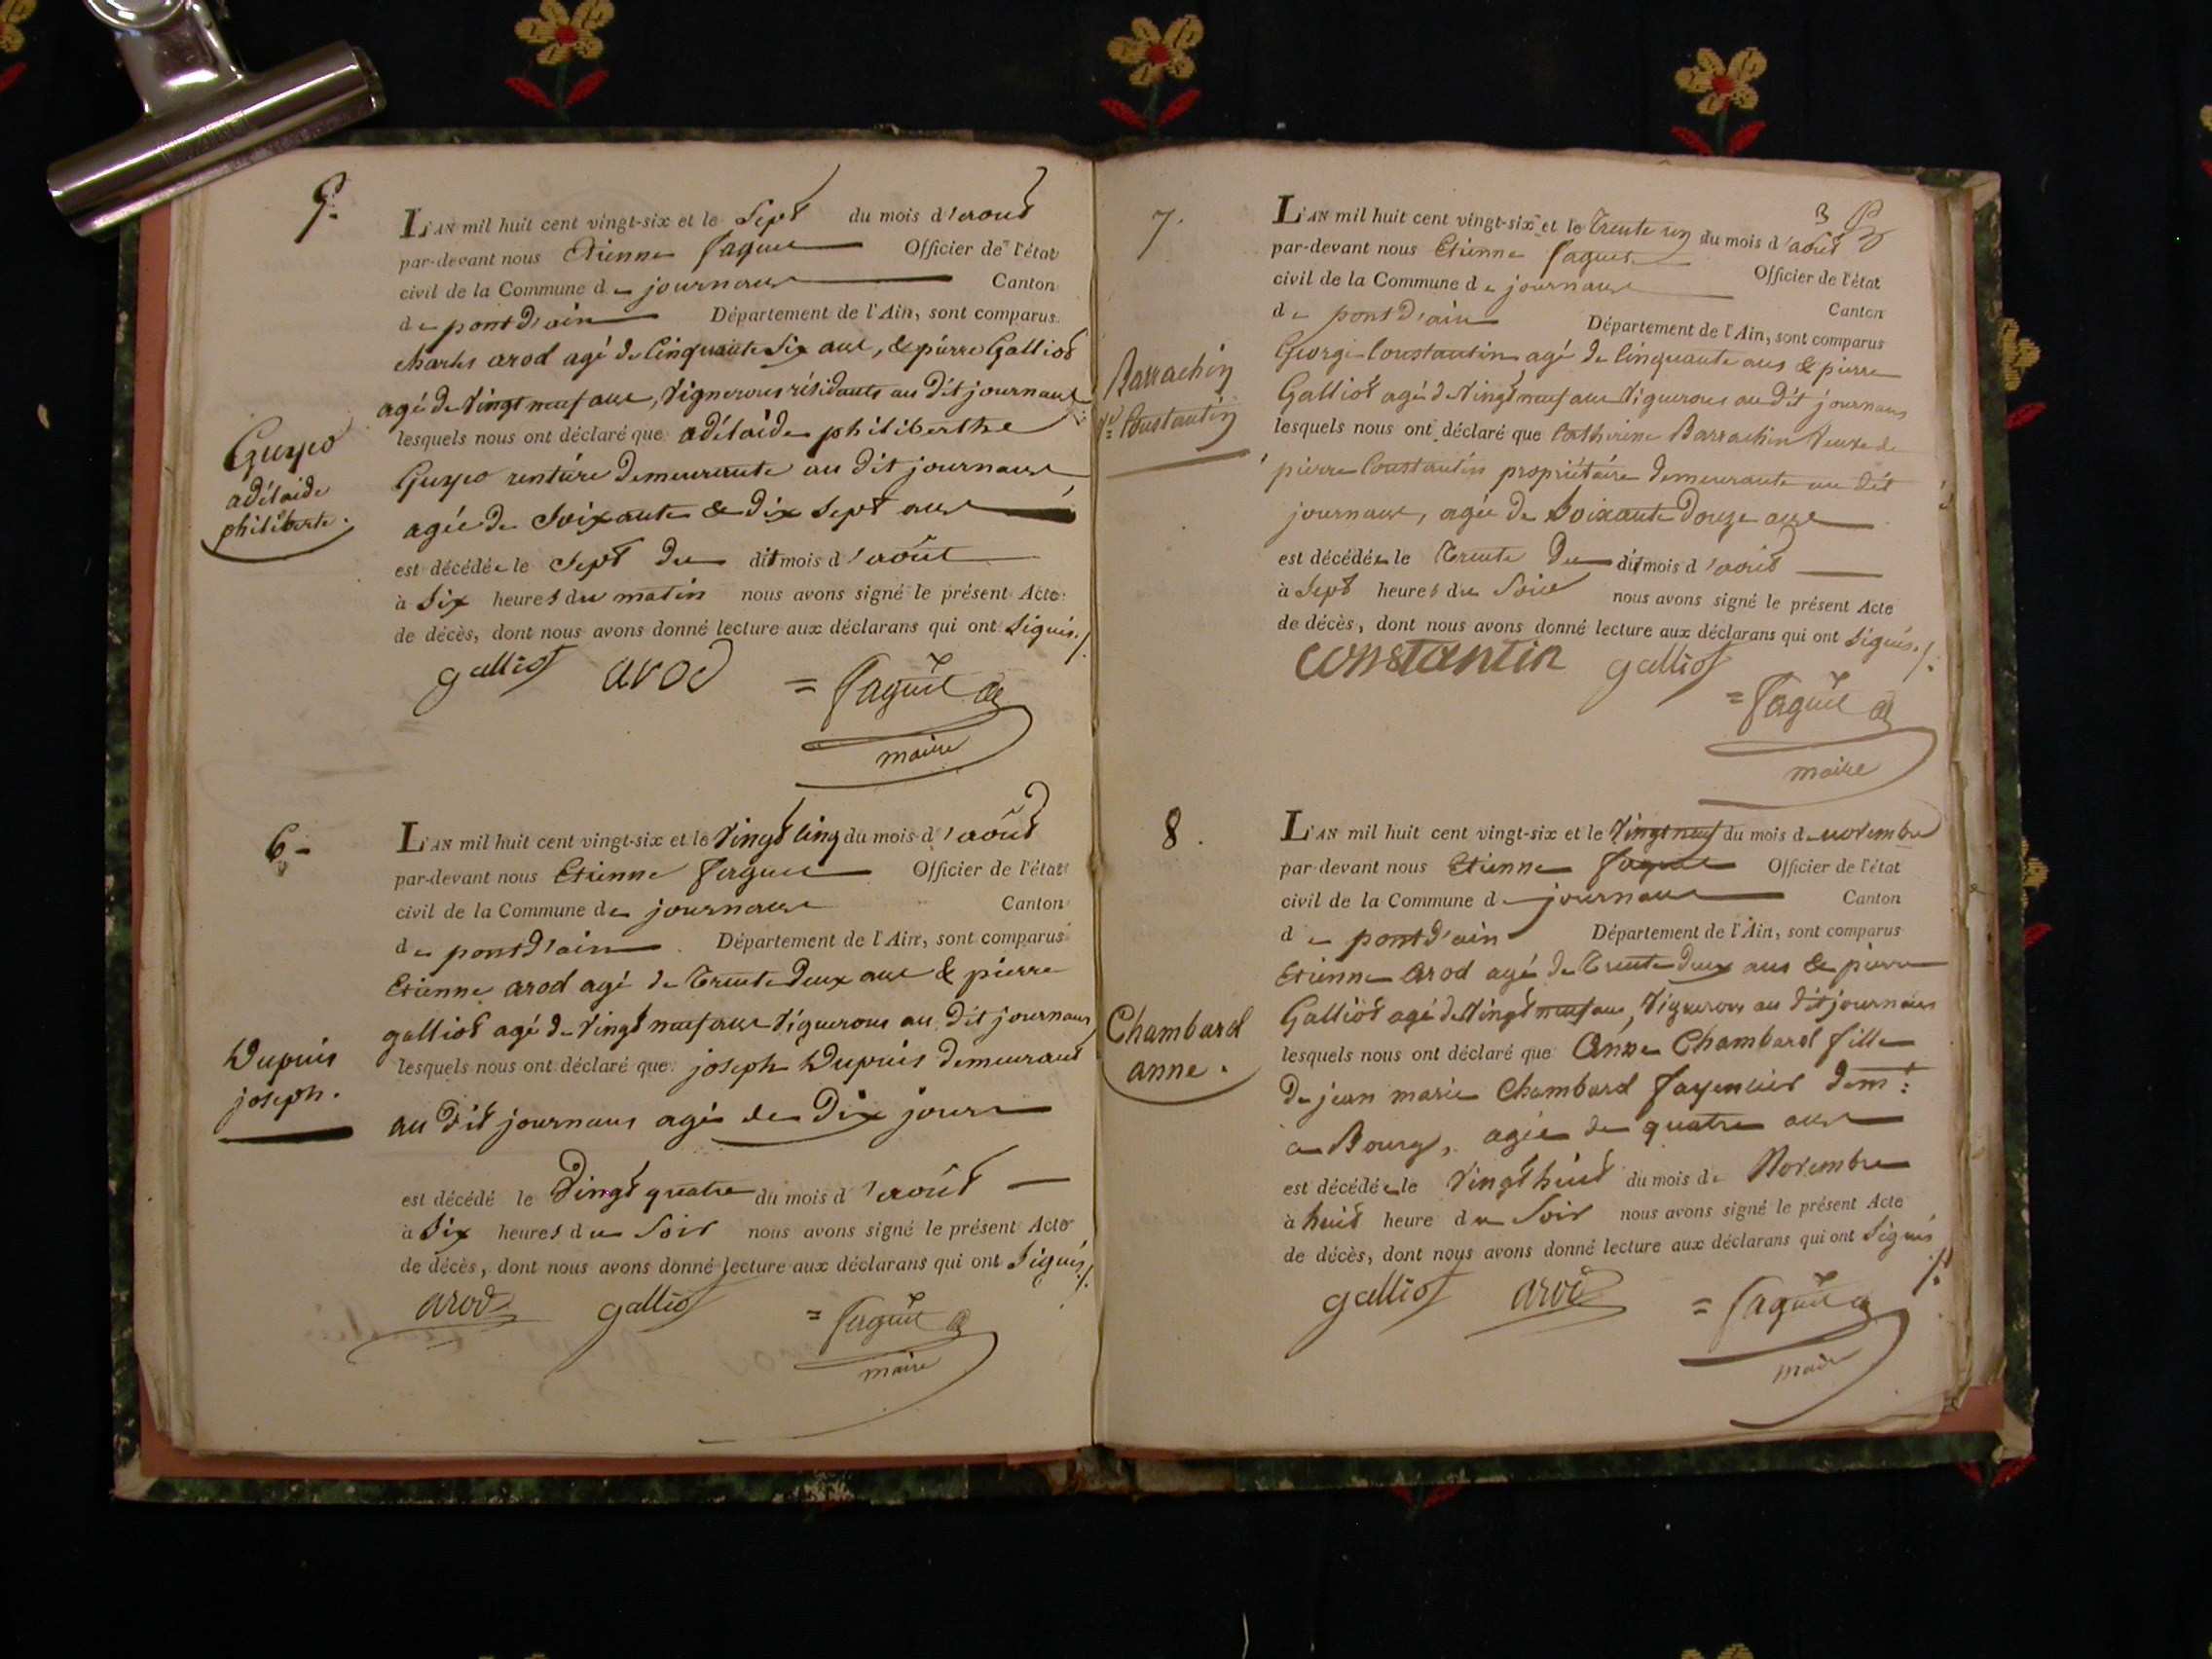 5.
L'AN mil huit cent vingt-six et le Sept du mois d'aout
par-devant nous Etienne Officier de l'état
civil de la Commune de journans Canton
de pont d'ain Département de l'Ain, sont comparus
charles arod agé de Cinquante Six ans, & pierre Galliot
agé de Vingt neuf ans, Vignerons résidants au dit journans
lesquels nous ont déclaré que adélaïde philiberthe
rentière demeurante au dit journans
agée de Soixante & dix Sept ans
est décédée le Sept du dit mois d'août
à Six heures du matin nous avons signé le présent Acte
de décès, dont nous avons donné lecture aux déclarans qui ont Signés./.
adélaide
philiberte.
galliot arod
maire
6
L'AN mil huit cent vingt-six et le Vingt Cinq du mois d'août
par-devant nous Etienne Officier de l'état
civil de la Commune de journans Canton
de pont d'ain Département de l'Ain, sont comparus
Etienne arod agé de Trente deux ans & pierre
galliot agé de Vingt neuf ans Vignerons au dit journans
lesquels nous ont déclaré que joseph Dupuis demeurant
au dit journans agé de Dix jours
est décédé le Vingt quatre du mois d'août
à Six heures du Soir nous avons signé le présent Acte
de décès, dont nous avons donné lecture aux déclarans qui ont Signés./.
Dupuis
joseph.
arod galliot
maire
3
7.
L'AN mil huit cent vingt-six et le Trente un du mois d'août
par-devant nous Etienne Officier de l'état
civil de la Commune de journans Canton
de pont d'ain Département de l'Ain, sont comparus
George Constantin, agé de Cinquante ans & pierre
Galliot agé de Vingt neuf ans Vignerons au dit journans
lesquels nous ont déclaré que Catherine Barrachin Veuve de
pierre Constantin propriétaire demeurante au dit
journans, agée de Soixante Douze ans
est décédée le Trente du dit mois d'août
à Sept heures du Soir nous avons signé le présent Acte
de décès, dont nous avons donné lecture aux déclarans qui ont Signés./.
Barrachin
Ve Constantin
constantin galliot
maire
8.
L'AN mil huit cent vingt-six et le Vingt neuf du mois de novembre
par-devant nous Etienne Officier de l'état
civil de la Commune de journans Canton
de pont d'ain Département de l'Ain, sont comparus
Etienne Arod agé de Trente deux ans & pierre
Galliot agé de Vingt neuf ans, Vignerons au dit journans
lesquels nous ont déclaré que Anne Chambard fille
de jean marie Chambard fayencier dem.t
a Bourg, agée de quatre ans
est décédée le Vingt huit du mois de Novembre
à huit heure du Soir nous avons signé le présent Acte
de décès, dont nous avons donné lecture aux déclarans qui ont Signés ./.
Chambard
anne.
galliot arod
maire